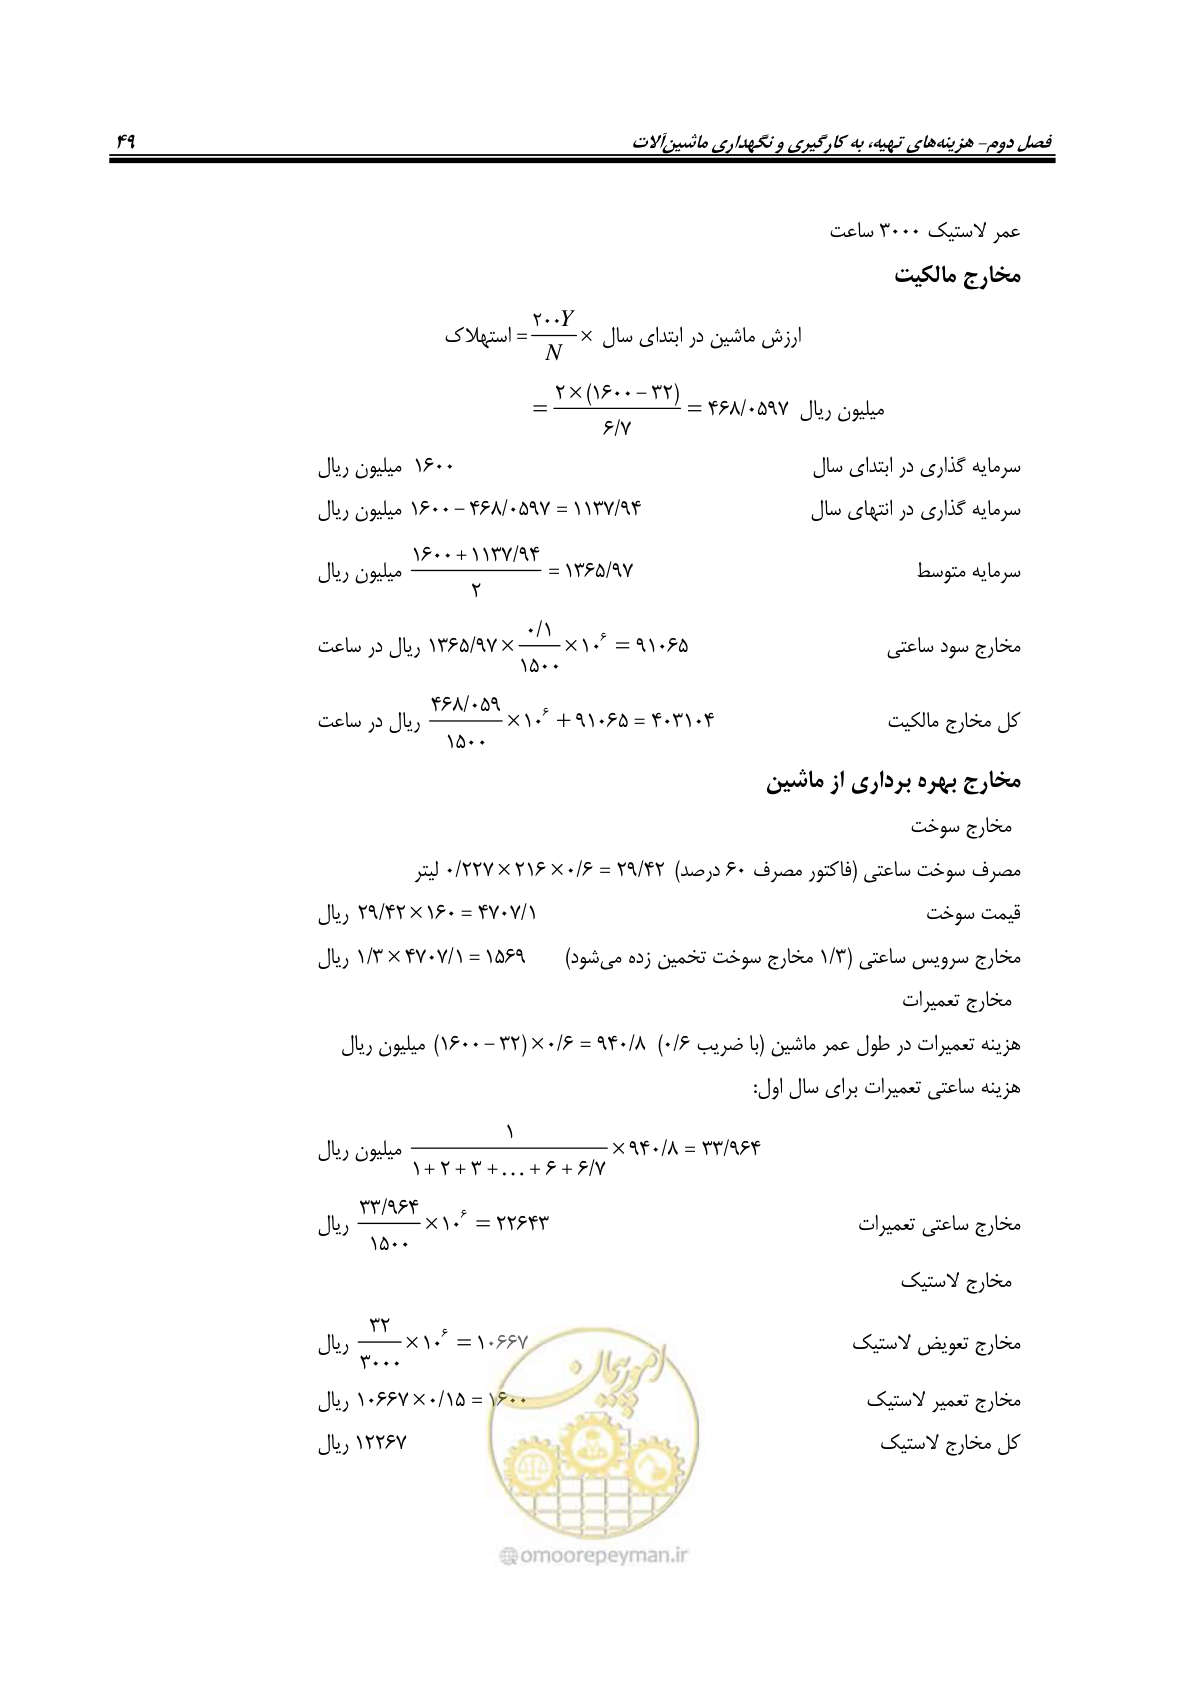 فصل دوم- هزینه‌های تهیه، به کارگیری و نگهداری ماشین‌آلات ۴۹
عمر لاستیک ۳۰۰۰ ساعت
مخارج مالکیت
استهلاک = ۲۰۰Y / N × ارزش ماشین در ابتدای سال
= ۲×(۱۶۰۰−۳۲) / ۶/۷ = ۴۶۸/۰۵۹۷ میلیون ریال
سرمایه گذاری در ابتدای سال ۱۶۰۰ میلیون ریال
سرمایه گذاری در انتهای سال ۱۶۰۰−۴۶۸/۰۵۹۷ = ۱۱۳۷/۹۴ میلیون ریال
سرمایه متوسط ۱۶۰۰+۱۱۳۷/۹۴ / ۲ = ۱۳۶۵/۹۷ میلیون ریال
مخارج سود ساعتی ۱۳۶۵/۹۷ × ۰/۱ / ۱۵۰۰ × ۱۰^۶ = ۹۱۰۶۵ ریال در ساعت
کل مخارج مالکیت ۴۶۸/۰۵۹ / ۱۵۰۰ × ۱۰^۶ + ۹۱۰۶۵ = ۴۰۳۱۰۴ ریال در ساعت
مخارج بهره برداری از ماشین
مخارج سوخت
مصرف سوخت ساعتی (فاکتور مصرف ۶۰ درصد) ۰/۲۲۷×۲۱۶×۰/۶ = ۲۹/۴۲ لیتر
قیمت سوخت ۲۹/۴۲×۱۶۰ = ۴۷۰۷/۱ ریال
مخارج سرویس ساعتی (۱/۳ مخارج سوخت تخمین زده می‌شود) ۱/۳×۴۷۰۷/۱ = ۱۵۶۹ ریال
مخارج تعمیرات
هزینه تعمیرات در طول عمر ماشین (با ضریب ۰/۶) (۱۶۰۰−۳۲)×۰/۶ = ۹۴۰/۸ میلیون ریال
هزینه ساعتی تعمیرات برای سال اول:
۱ / ۱+۲+۳+...+۶+۶/۷ × ۹۴۰/۸ = ۳۳/۹۶۴ میلیون ریال
مخارج ساعتی تعمیرات ۳۳/۹۶۴ / ۱۵۰۰ × ۱۰^۶ = ۲۲۶۴۳ ریال
مخارج لاستیک
مخارج تعویض لاستیک ۳۲ / ۳۰۰۰ × ۱۰^۶ = ۱۰۶۶۷ ریال
مخارج تعمیر لاستیک ۱۰۶۶۷×۰/۱۵ = ۱۶۰۰ ریال
کل مخارج لاستیک ۱۲۲۶۷ ریال
امور پیمان
@omoorepeyman.ir